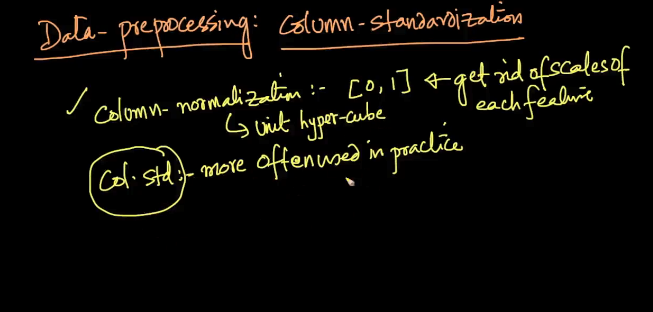 Data-preprocessing: Column-standardization
✓ Column-normalization :- [0,1] ← get rid of scales of
each feature
↳ unit hyper-cube
Col. std :- more offen used in practice